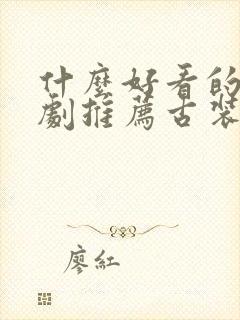 什麼好看的
劇推薦古裝
廖紅